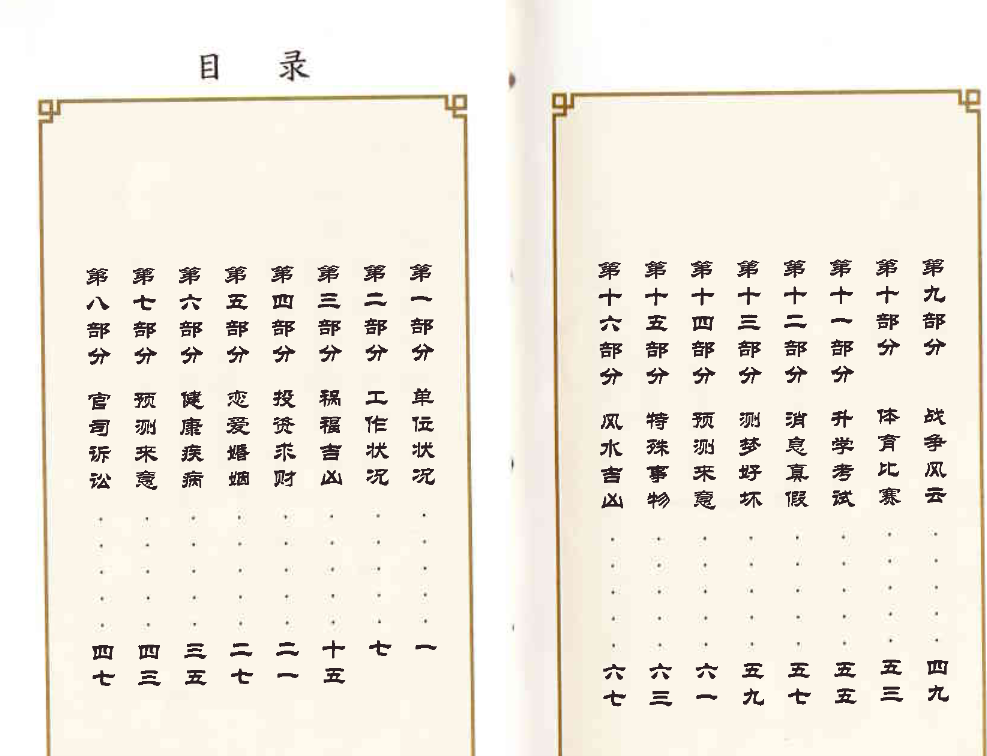 目录
第一部分 单位状况·····一
第二部分 工作状况·····七
第三部分 祸福吉凶·····十五
第四部分 投资求财·····二一
第五部分 恋爱婚姻·····二七
第六部分 健康疾病·····三五
第七部分 预测来意·····四三
第八部分 官司诉讼·····四七
第九部分 战争风云·····四九
第十部分 体育比赛·····五三
第十一部分 升学考试·····五五
第十二部分 消息真假·····五七
第十三部分 测梦好坏·····五九
第十四部分 预测来意·····六一
第十五部分 特殊事物·····六三
第十六部分 风水吉凶·····六七